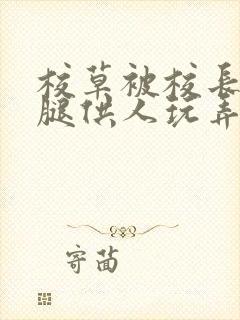 校草被校長
腿供人玩弄
寄菌